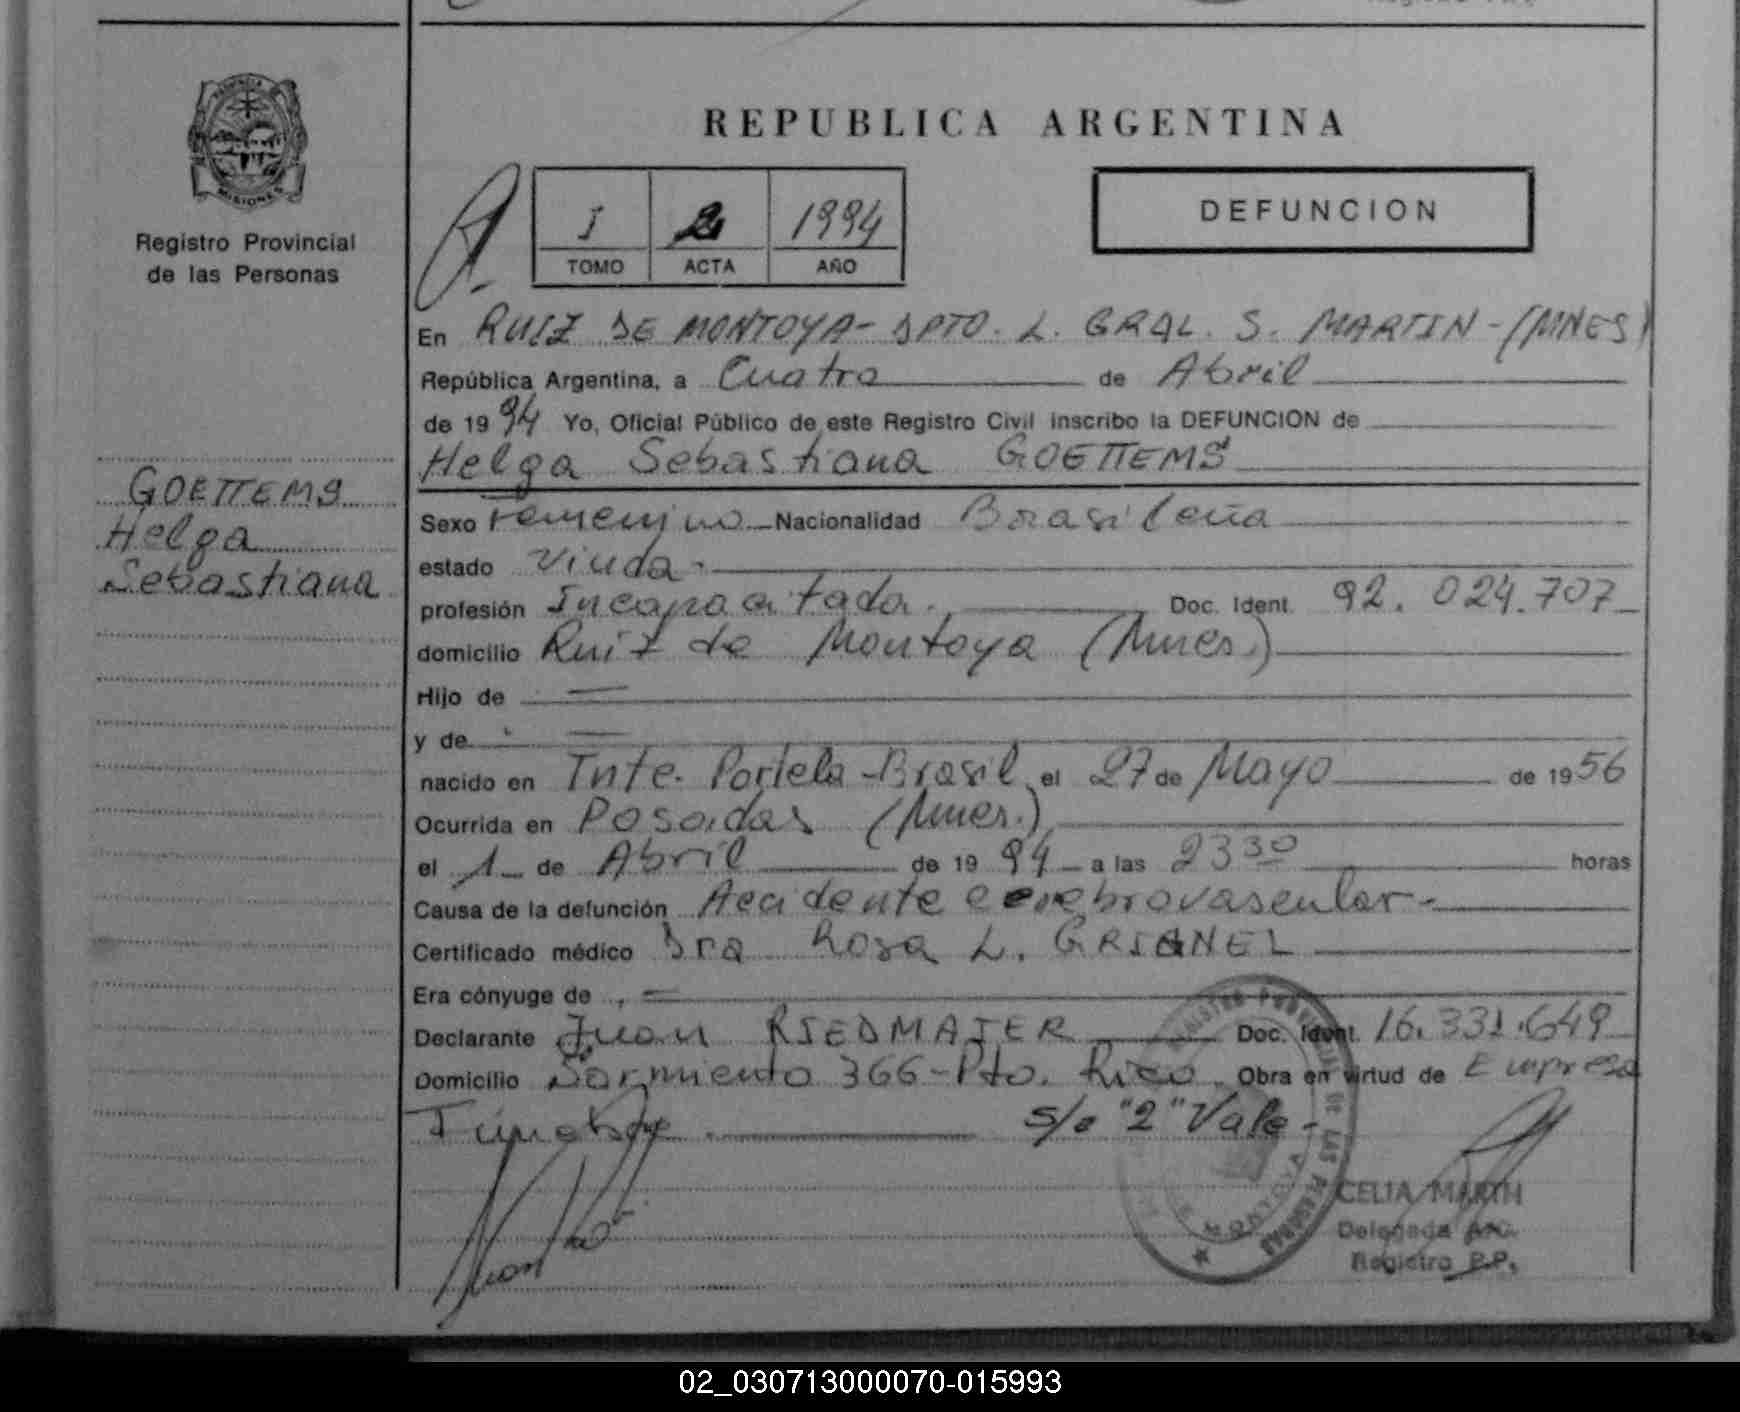 PROVINCIA DE
MISIONES
Registro Provincial
de las Personas
GOETTEMS
Helga
Sebastiana
REPUBLICA ARGENTINA
I 2 1994
TOMO ACTA AÑO
DEFUNCION
En RUIZ DE MONTOYA - DPTO. L. GRAL. S. MARTIN - (MNES)
República Argentina, a Cuatro de Abril
de 1994 Yo, Oficial Público de este Registro Civil inscribo la DEFUNCION de
Helga Sebastiana GOETTEMS
Sexo Femenino Nacionalidad Brasileña
estado Viuda.
profesión Incapacitada. Doc. Ident. 92.024.707
domicilio Ruiz de Montoya (Mnes.)
Hijo de
y de
nacido en Tnte. Portela - Brasil el 27 de Mayo de 1956
Ocurrida en Posadas (Mnes.)
el 1 de Abril de 1994 a las 23 30 horas
Causa de la defunción Accidente cerebrovascular-
Certificado médico Dra Rosa L.
Era cónyuge de
Declarante Juan RIEDMAIER Doc. Ident. 16.331.649
Domicilio Sarmiento 366 - Pto. Rico Obra en virtud de Empresa
Fúnebre. s/e "2" Vale-
CELIA MARTH
Delegada
Registro P.P.
02_030713000070-015993